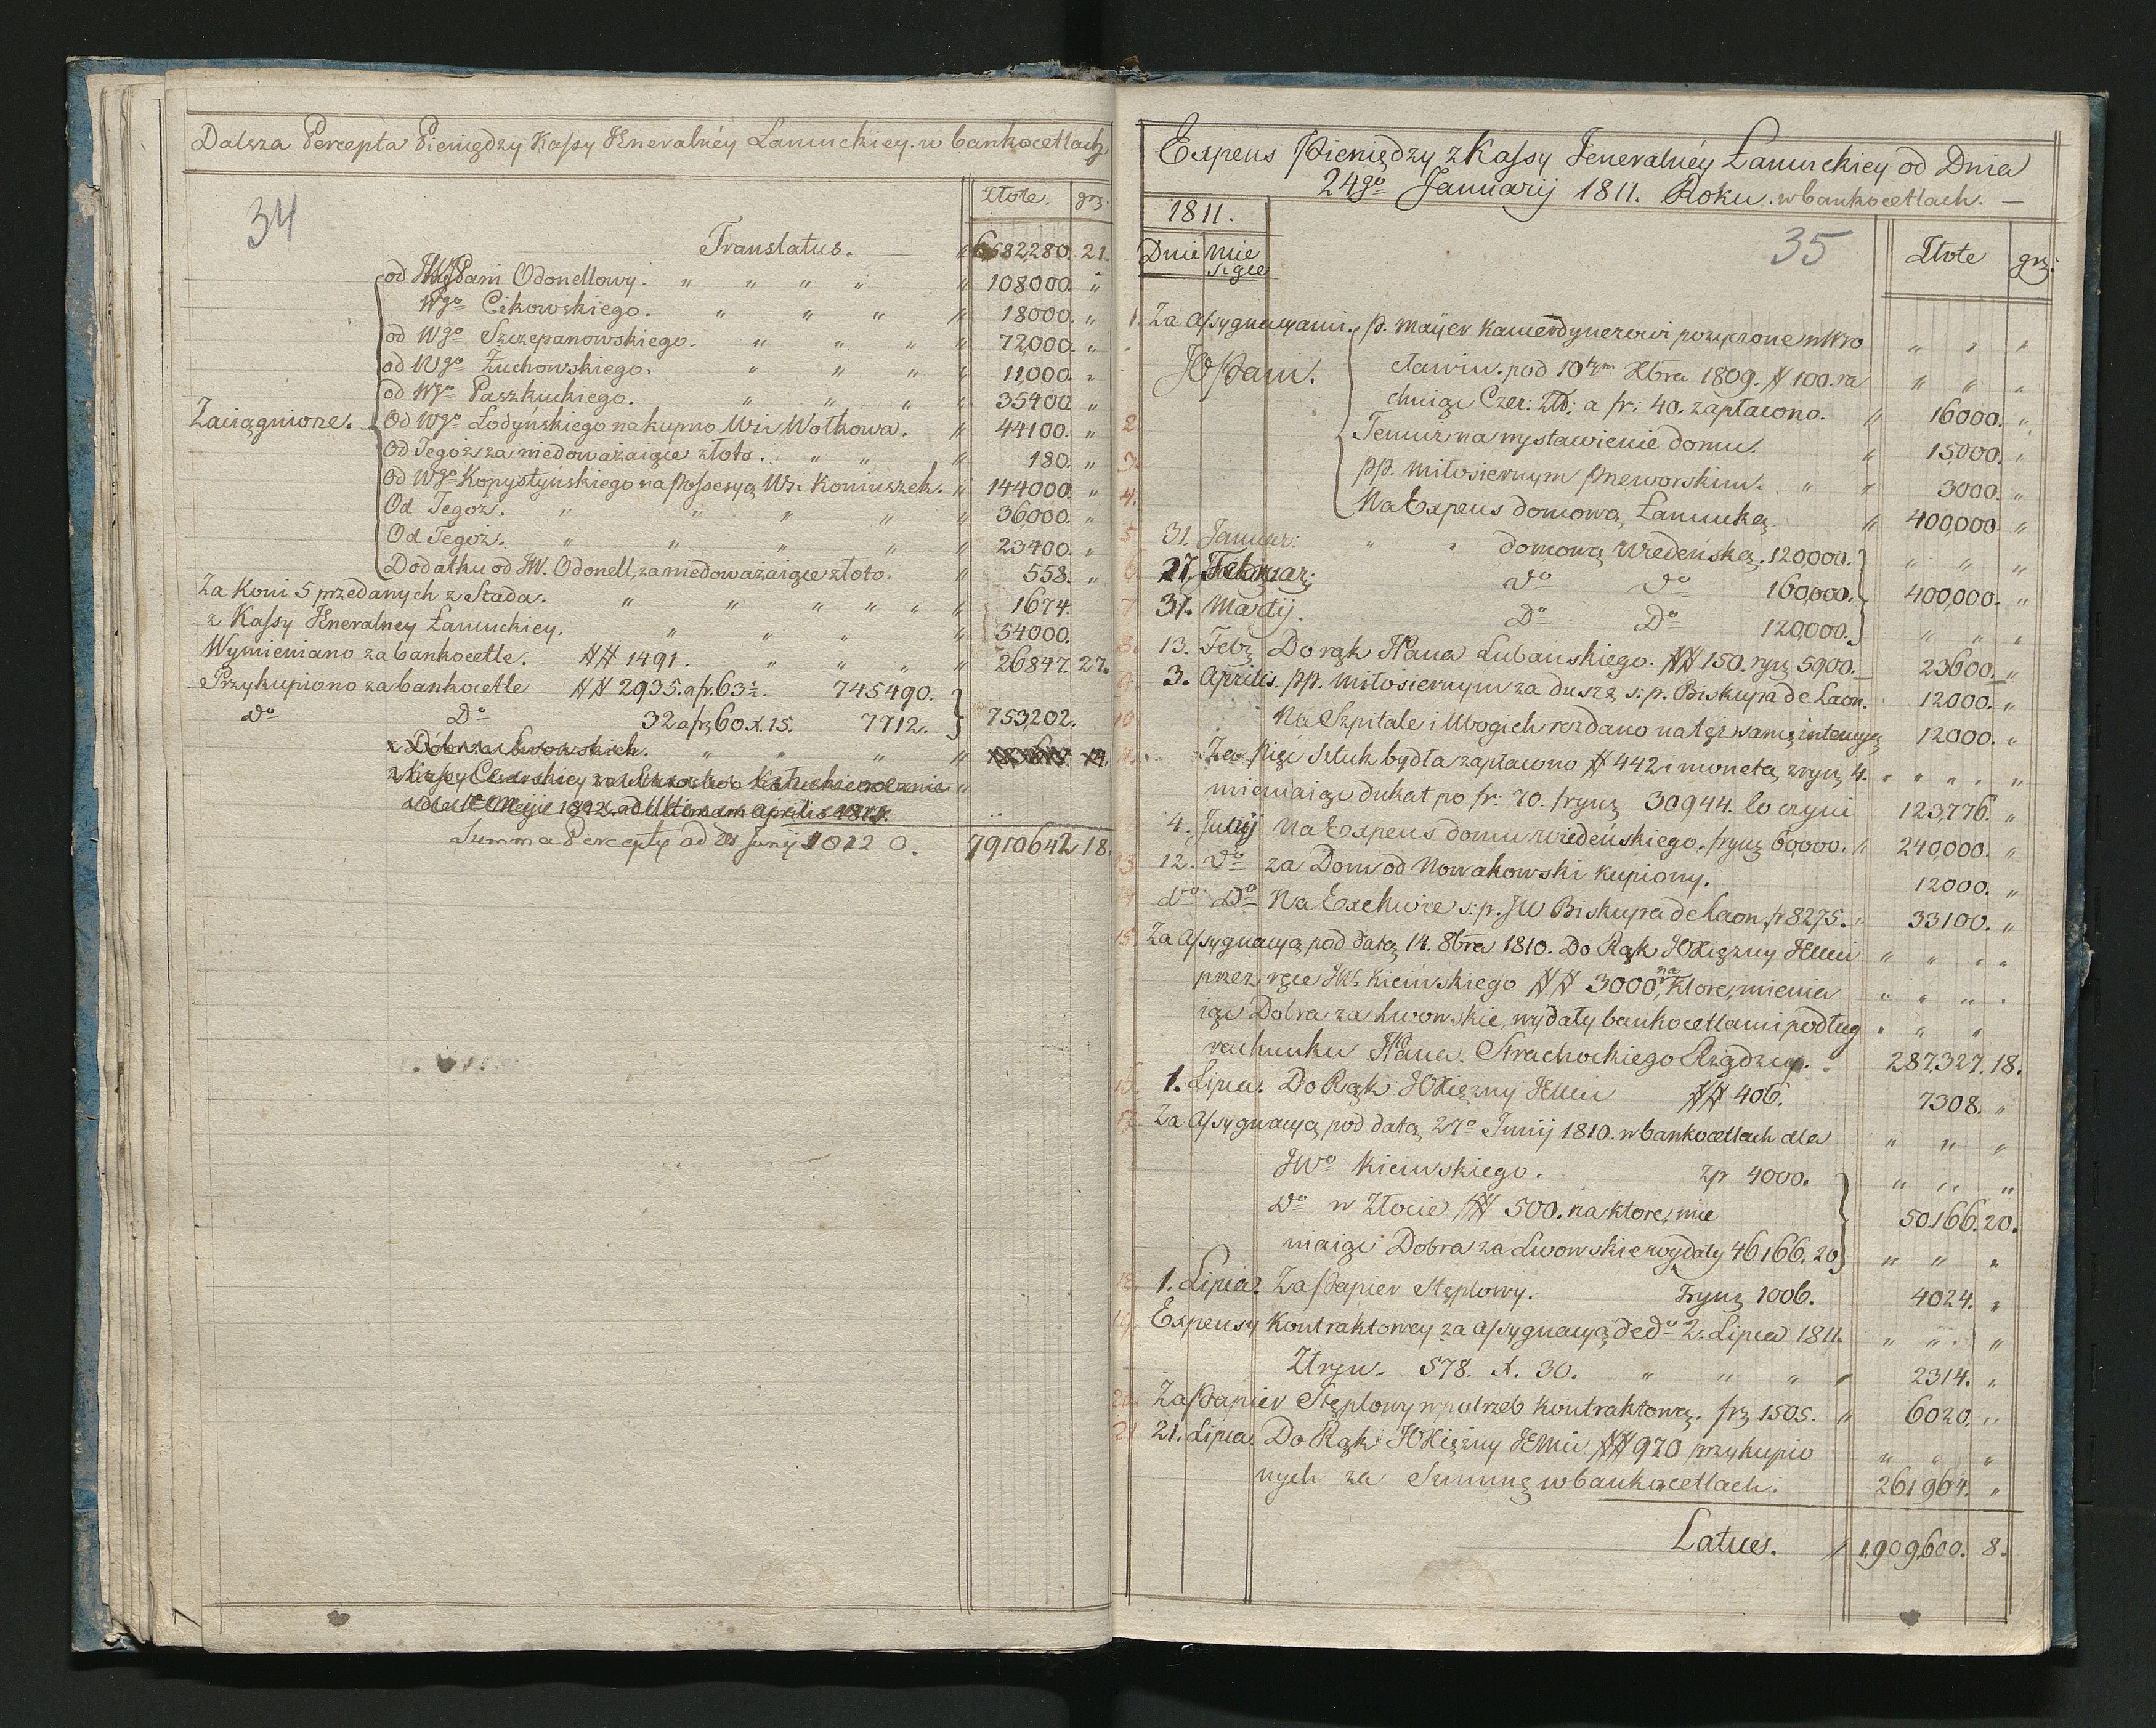 Dalsza Percepta Pieniędzy Kassy Jeneralney Łancuckiey w bankocetlach.
34
Złote. grz.
Translatus. 6682,280. 21.
od JW Pani Odonellowy. 108000. "
Wgo Cikowskiego. 18000. "
od Wgo Szczepanowskiego. 72,000. "
od Wgo Żuchowskiego. 11,000. "
od Wgo Paszkuckiego. 35400 "
Zaciągnione. Od Wgo Łodyńskiego na kupno Wsi Wołkowa. 44100. "
Od Tegoż za niedoważaiące złoto. 180. "
Od Wgo Kopystyńskiego na possesyą Wsi Koniuszek. 144000. "
Od Tegoż. 36000. "
Od Tegoż. 23400. "
Dodatku od JW. Odonell, za niedoważaiące złoto. 558. "
Za koni 5 przedanych z Stada. 1674.
z Kassy Jeneralney Łancuckiey. 54000.
Wymieniano za bankocetle. ## 1491. 26847. 27.
Przykupiono za bankocetle ## 2935. a fr. 63½. 745490.
do Do 32 a fr. 60. x. 15. 7712. 753,202.
z Dóbr za Lwowskich.
z Kassy
1812. ad Ultimam Aprilis
Summa Percepty ad Junij 1812 7910642 18.
Expens Pieniędzy z Kassy Jeneralnéy Łancuckiey od Dnia
24go Januarij 1811. Roku. w bankocetlach. —
1811.
35
Dnie Mie
siące
Złote grz.
1. Za Assygnacyami. p. Mayer Kamerdynerowi pożyczone w Wro
JO Pani. cławiu. pod 10tym Xbra 1809. # 100. ra
chuiąc Czer: Złt: a fr: 40. zapłacono. 16000. "
2. Temuż na wystawienie domu. 15,000. "
3. pp. Miłosiernym Przeworskim. 3000. "
4. Na Expens domową Łancucką 400,000. "
5 31. Januar: " " domową Wiedeńską. 120,000.
6 27. Februar: do do 160,000. 400,000. "
7 31. Martij. Do Do 120,000.
8. 13. Febr. Do rąk JPana Lubanskiego. ## 150. ryn. 5900. 23600. "
9 3. Aprilis. pp. Miłosiernym za duszę s: p. Biskupa de Laon. 12000. "
10 Na Szpitale i Ubogich rozdano na tęż samę intencyą 12000. "
11. Za Pięć Sztuk bydła zapłacono # 442 i monetą zryn. 4.
mieniaiąc dukat po fr: 70. fryn. 30944. co czyni 123,776. "
4. Julij Na Expens domu wiedeńskiego. fryn. 60,000. 240,000. "
13 12. do za Dom od Nowakowski kupiony. 12000. "
14 do Do Na Exekwie s: p. JW Biskupa de Laon, fr 8275. 33100. "
15. Za Assygnacyą, pod datą 14. 8bra 1810. Do Rąk JOXiężny JEMci
przez ręce JW. Kicińskiego ## 3000, na ktore, mienia
iąc Dobra za Lwowskie, wydały bankocetlami podług
rachunku JPana. Strachockiego Rządzcy. 287,327. 18.
16. 1. Lipca. Do Rąk JOXiężny JEMci ## 406. 7308. "
17. Za Assygnacyą pod datą 27o Junij 1810. w bankocetlach dla
JWo Kicinskiego. zp 4000.
Do w Złocie ## 500. na ktore, mie 50,166. 20.
niaiąc Dobra za Lwowskie wydały 46166. 20
18. 1. Lipca. Za Papier Stęplowy. zryn. 1006. 4024. "
19. Expensy Kontraktowey za Assygnacyą de do 2. Lipca 1811.
Złryn. 578. x. 30. 2314. "
20. Za Papier Stęplowy w potrzeb kontraktową. fr. 1505. 6020. "
21 21. Lipca. Do Rąk JOXiężny JEMci ## 920 przykupio
nych za Summę w bankocetlach. 261964. "
Latus. 1,909,600. 8.